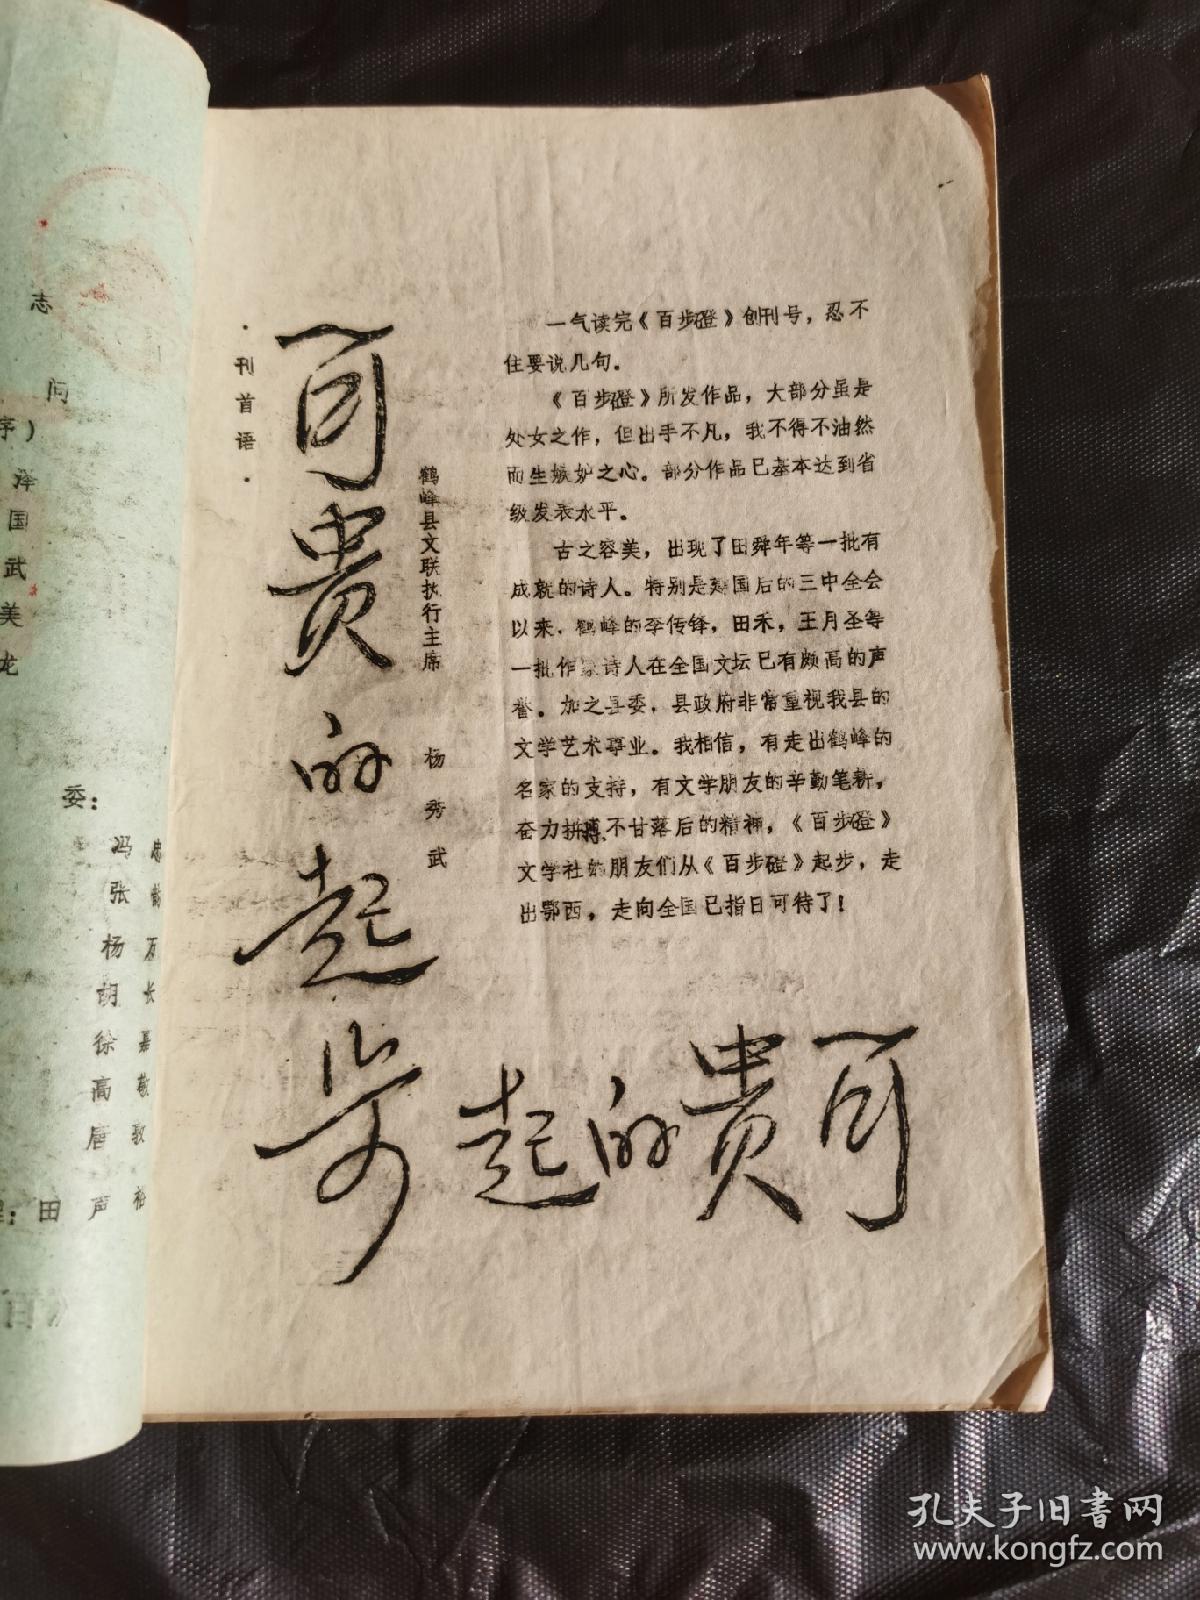 ·刊首语·
可贵的起步
鹤峰县文联执行主席 杨秀武
一气读完《百步磴》创刊号，忍不
住要说几句。
《百步磴》所发作品，大部分虽是
处女之作，但出手不凡，我不得不油然
而生嫉妒之心。部分作品已基本达到省
级发表水平。
古之容美，出现了田舜年等一批有
成就的诗人。特别是建国后的三中全会
以来，鹤峰的李传锋，田禾，王月圣等
一批作家诗人在全国文坛已有颇高的声
誉。加之县委、县政府非常重视我县的
文学艺术事业。我相信，有走出鹤峰的
名家的支持，有文学朋友的辛勤笔耕，
奋力拼搏不甘落后的精神，《百步磴》
文学社的朋友们从《百步磴》起步，走
出鄂西，走向全国已指日可待了！
起的贵可
志
问
序）
泽
国
武
美
龙
委：
冯
张
杨
胡
徐
高
唐
田声
孔夫子旧书网
www.kongfz.com